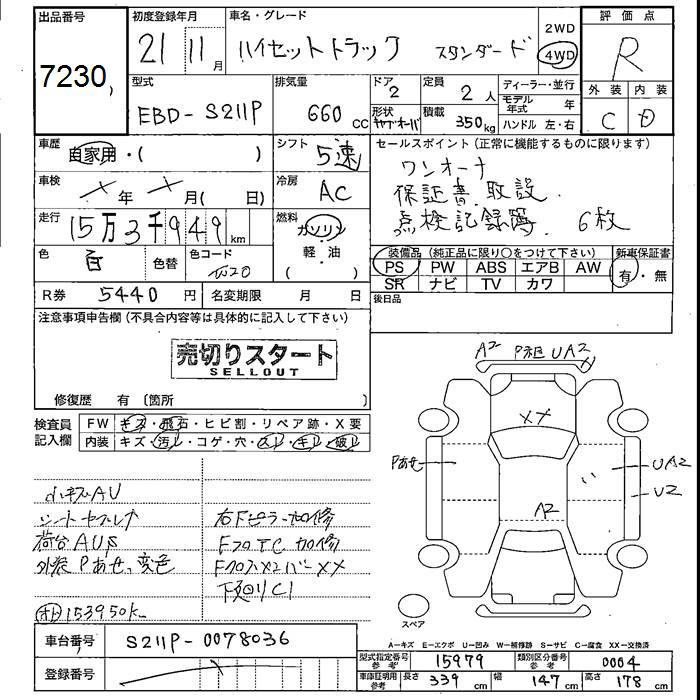 出品番号
7230
初度登録年月
21 11月
車名・グレード
ハイゼットトラック スタンダード
2WD
4WD
評価点
R
外装 内装
C D
型式
EBD-S211P
排気量
660 CC
ドア
2
形状
定員
2人
積載
350kg
ディーラー・並行
モデル年式 年
ハンドル 左・右
車歴
自家用・( )
シフト
5速
車検
年 月( 日)
冷房
AC
走行
15万3千949km
燃料
ガソリン
軽・油
( )
色
白
色替
色コード
W20
R券 5440円
名変期限 月 日
セールスポイント(正常に機能するものに限ります)
ワンオーナ
保証書 取説
点検記録簿 6枚
装備品(純正品に限り○をつけて下さい)
新車保証書
PS PW ABS エアB AW
SR ナビ TV カワ
有・無
後日品
注意事項申告欄(不具合内容等は具体的に記入して下さい)
売切りスタート
SELLOUT
修復歴 有〔箇所 〕
検査員記入欄
FW キズ・飛石・ヒビ割・リペア跡・X要
内装 キズ・汚レ・コゲ・穴・スレ・キレ・破レ
小キズAU
シートヤブレ
荷台AUS
外装Pあせ、変色
153950k
右Fピラー加修
FフロTC加修
下回りC1
A2 UA2
XX
Pあせ
UA2
U2
A2
スペア
A=キズ E=エクボ U=凹み W=補修跡 S=サビ C=腐食 XX=交換済
車台番号 S211P-0078036
登録番号
型式指定番号 参考 15979
類別区分番号 参考 0004
車庫証明用 参考 長さ 339cm 幅 147cm 高さ 178cm